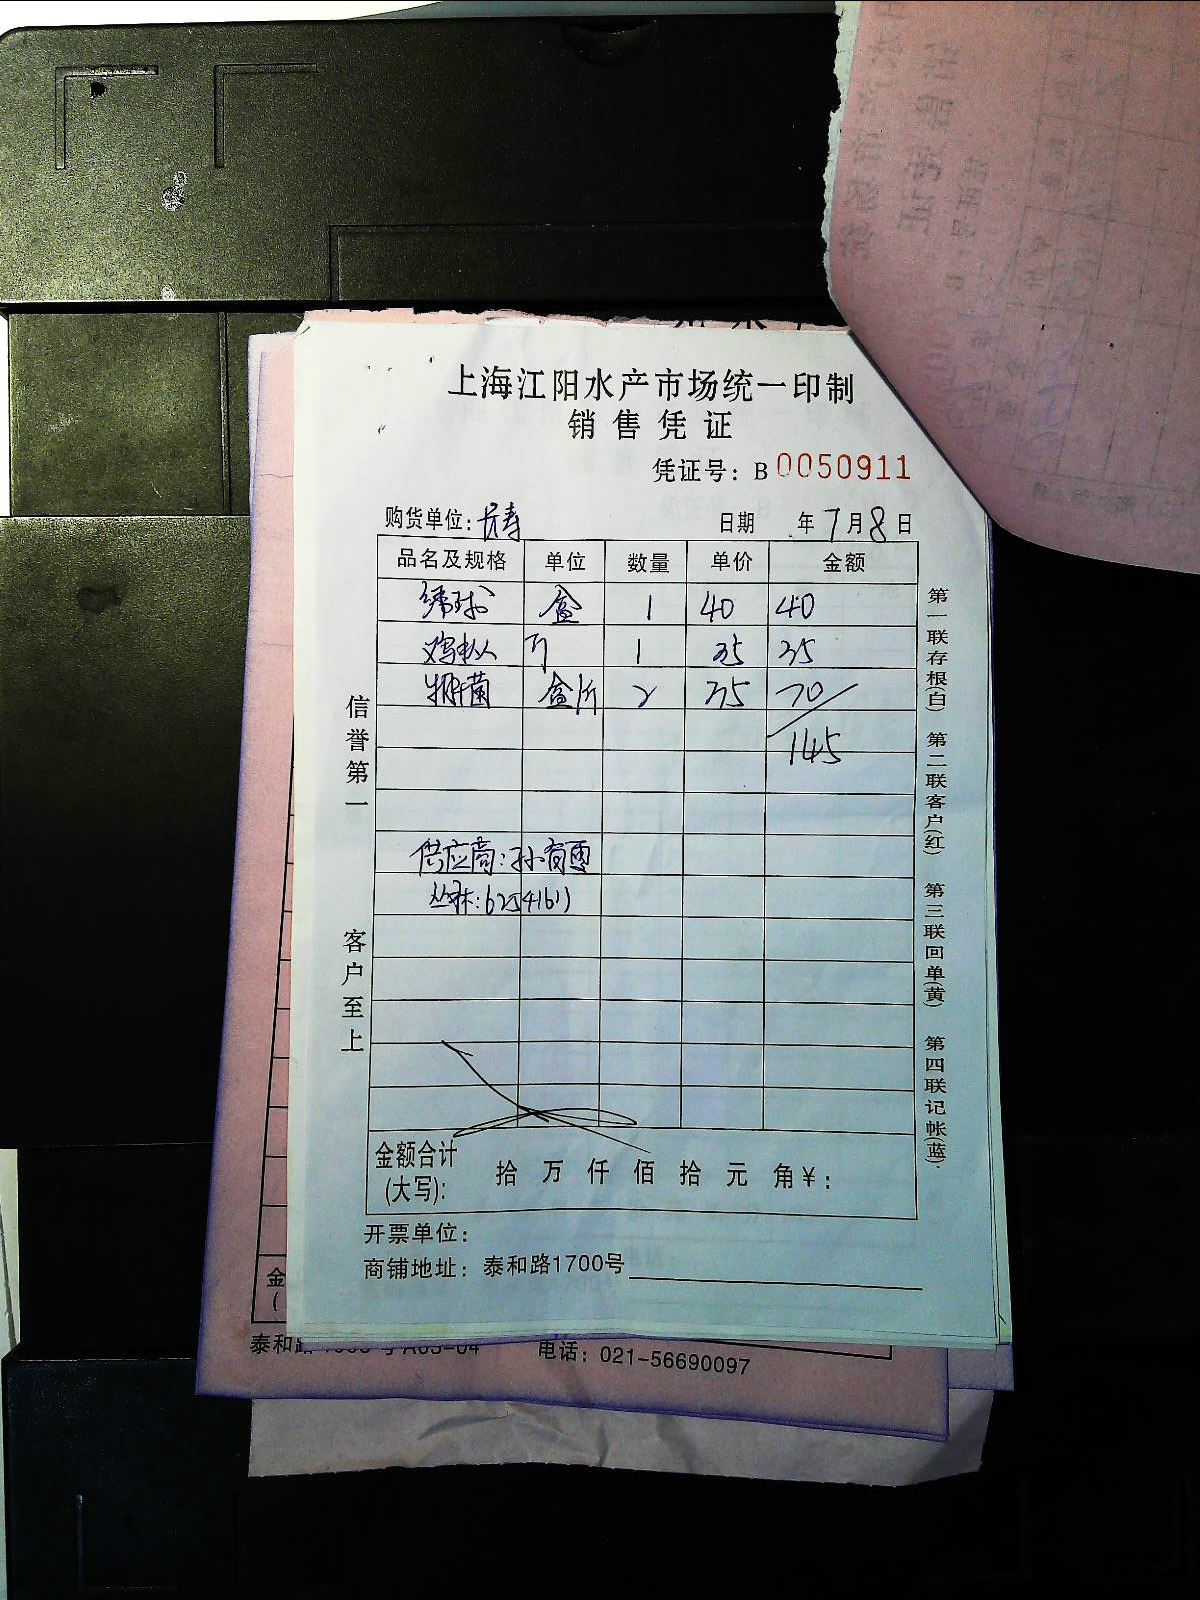 上海江阳水产市场统一印制
销售凭证
凭证号：B 0050911
购货单位：长寿 日期 年 7 月 8 日
品名及规格 单位 数量 单价 金额
绣球 盒 1 40 40
鸡枞 1 35 35
牛肝菌 盒/斤 2 35 70
145
供应商：孙有雪
丛林：62541611
金额合计
(大写)： 拾 万 仟 佰 拾 元 角￥：
开票单位：
商铺地址：泰和路1700号
信誉第一 客户至上
第一联存根(白) 第二联客户(红) 第三联回单(黄) 第四联记帐(蓝)
金
泰和路 A05-04 电话：021-56690097